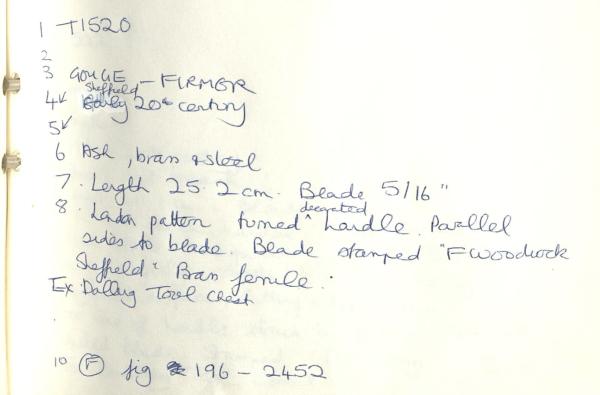 1 T1520
2
3 GOUGE - FIRMER
Sheffield
4 ✓ Early 20th century
5 ✓
6 Ash, brass & steel
7. Length 25.2cm. Blade 5/16"
decorated
8. London pattern turned ^ handle. Parallel
sides to blade. Blade stamped "F Woodcock
Sheffield" Brass ferrule.
Ex: Tool Chest
10 (F) fig 196 - 2452